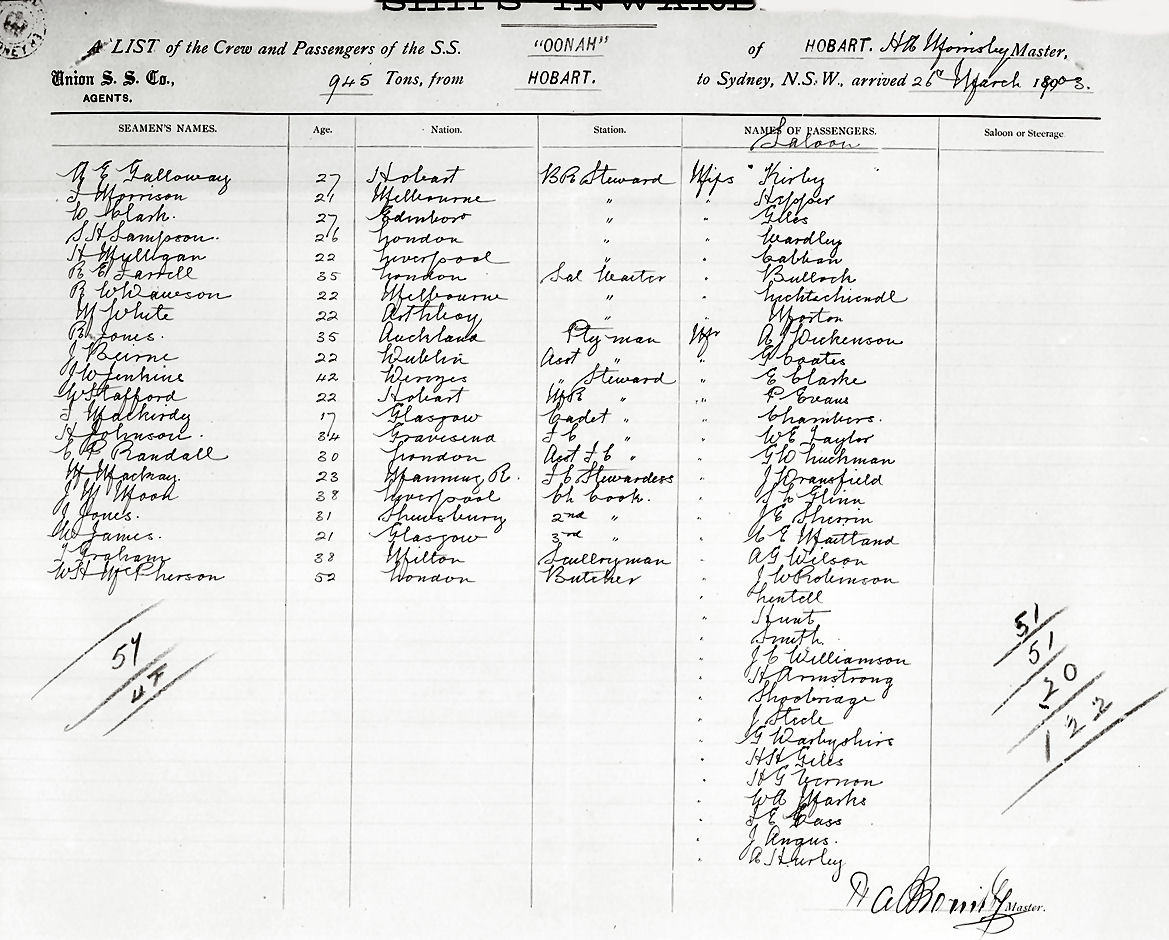 SHIPS INWARD
A LIST of the Crew and Passengers of the S.S. "OONAH" of HOBART. Master,
Union S. S. Co., 945 Tons, from HOBART. to Sydney, N.S.W., arrived 26 March 1903.
AGENTS.
SEAMEN'S NAMES. Age. Nation. Station. NAMES OF PASSENGERS. Saloon or Steerage
Saloon
A E Galloway 27 Hobart BR Steward Miss Kirby "
Morrison 21 Melbourne " " Hopper
W Clark. 27 Edinboro " " Giles
S H Sampson. 26 London " " Wardley
H Mylligan 22 Liverpool " "
R E 35 London Sal Waiter " Bulloch
R W Dawson 22 Melbourne " "
W White 22 " " Morton
R Jones. 35 Auckland Pty man Mr A J Dickenson
J Beirne 22 Dublin Asst " " G Coates
J W Jenkins 42 " Steward " E Clarke
W Stafford 22 Hobart " " F Evans
17 Glasgow Cadet " " Chambers.
H Johnson. 34 Gravesend " " W E Taylor
C P Randall 30 London Asst " " G W Luckman
M Mackay. 23 Manning R. Stewardess " J Dransfield
J W Hook 38 Liverpool Ch Cook. " Glinn
J Jones. 31 Shewsbury 2nd " " J E Sherrin
W James. 21 Glasgow 3rd " " C E Maitland
Graham 38 Milton Sculleryman " A G Wilson
W H McPherson 52 London Butcher " J W Robinson
" Lentell
" Hunt
" Smith.
" J C Williamson
" H Armstrong
" Shoobridge
" J Steele
" G Darbyshire
" H H Giles
" H G Vernon
" W A Marks
" Cass
" J Angus.
" A Hurley
51
51
20
122
54
47
Master.